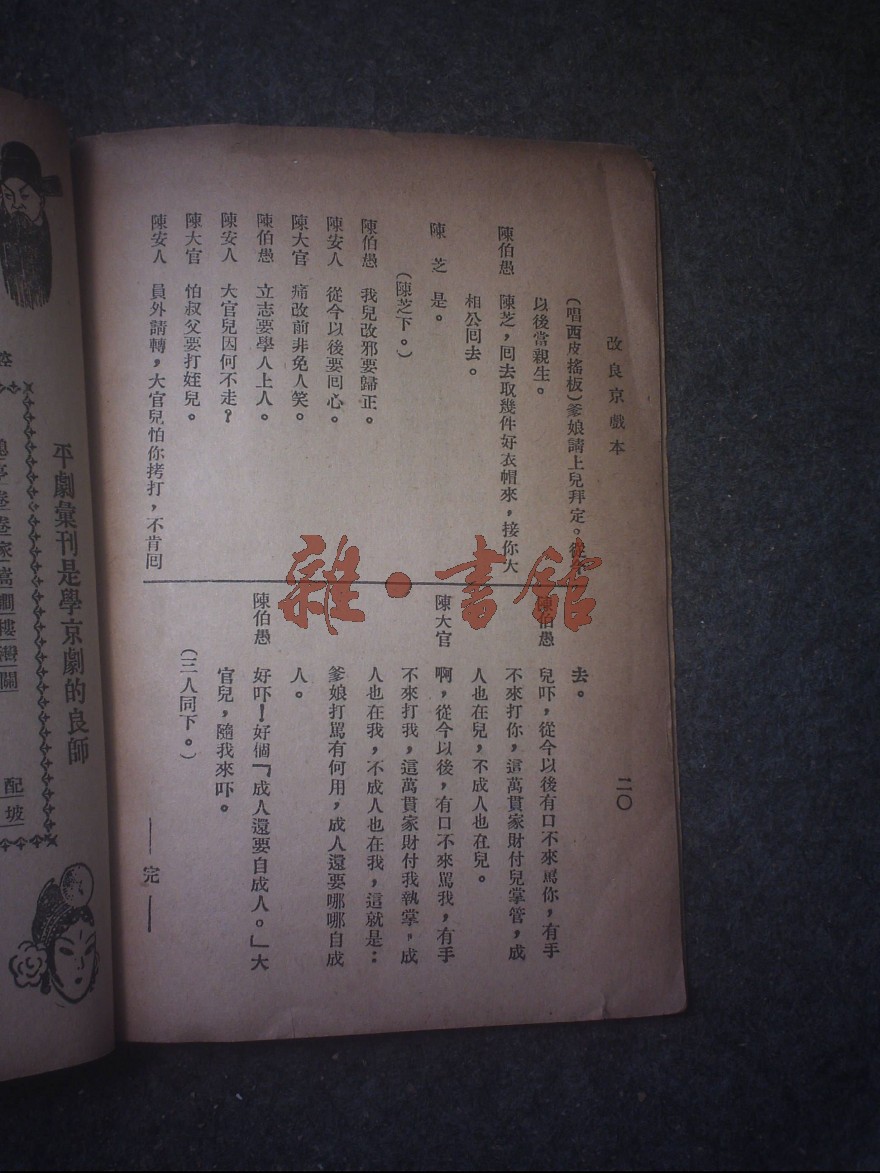 改良京戲本
二〇
（唱西皮搖板）爹娘請上兒拜定。從
以後當親生。
陳伯愚 陳芝，囘去取幾件好衣帽來，接你大
相公囘去。
陳芝 是。
（陳芝下。）
陳伯愚 我兒改邪要歸正。
陳安人 從今以後要囘心。
陳大官 痛改前非免人笑。
陳伯愚 立志要學人上人。
陳安人 大官兒因何不走？
陳大官 怕叔父要打姪兒。
陳安人 員外請轉，大官兒怕你拷打，不肯囘
去。
陳伯愚 兒吓，從今以後有口不來駡你，有手
不來打你，這萬貫家財付兒掌管，成
人也在兒，不成人也在兒。
陳大官 啊，從今以後，有口不來駡我，有手
不來打我，這萬貫家財付我執掌，成
人也在我，不成人也在我，這就是：
爹娘打駡有何用，成人還要哪哪自成
人。
陳伯愚 好吓！好個「成人還要自成人。」大
官兒，隨我來吓。
（三人同下。）
——完——
平劇彙刊是學京劇的良師
配
坡
雜·書館